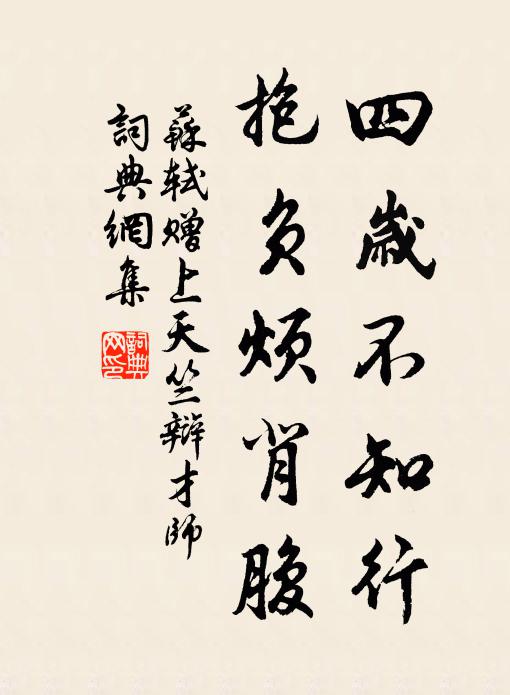 四歲不知行
抱負煩背腹
蘇軾贈上天竺辯才師
詞典網集
詞典網印